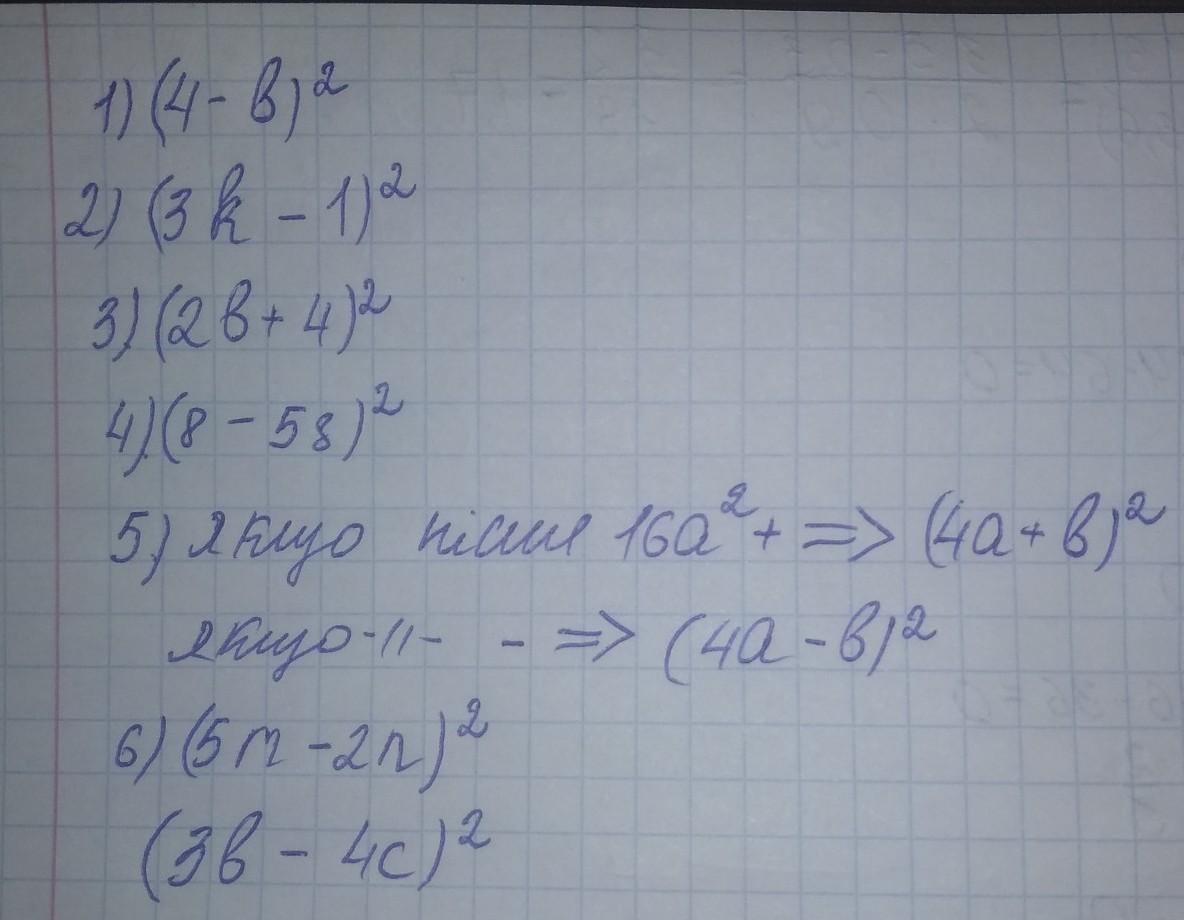 1) (4 - в)²
2) (3k - 1)²
3) (2в + 4)²
4) (8 - 5s)²
5) якщо після 16a² + => (4a + в)²
якщо -11- - => (4a - в)²
6) (5m - 2n)²
(3в - 4c)²